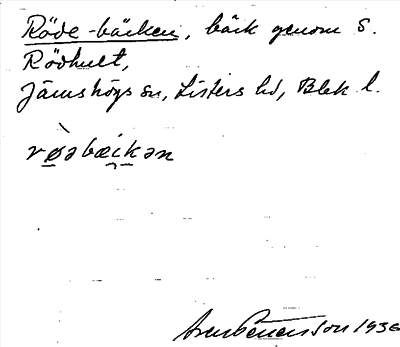 Röde-bäcken, bäck genom S.
Rödhult,
Jämshögs sn, Listers hd, Blek. l.
røəbæikən
1936